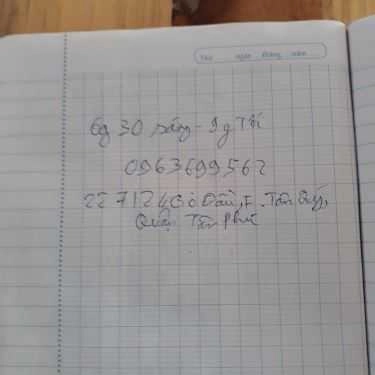 Thứ ngày tháng năm
6g 30 sáng - 9g Tối
0963699562
227/24 Gò Dầu, F. Tân Quý,
Quận Tân Phú